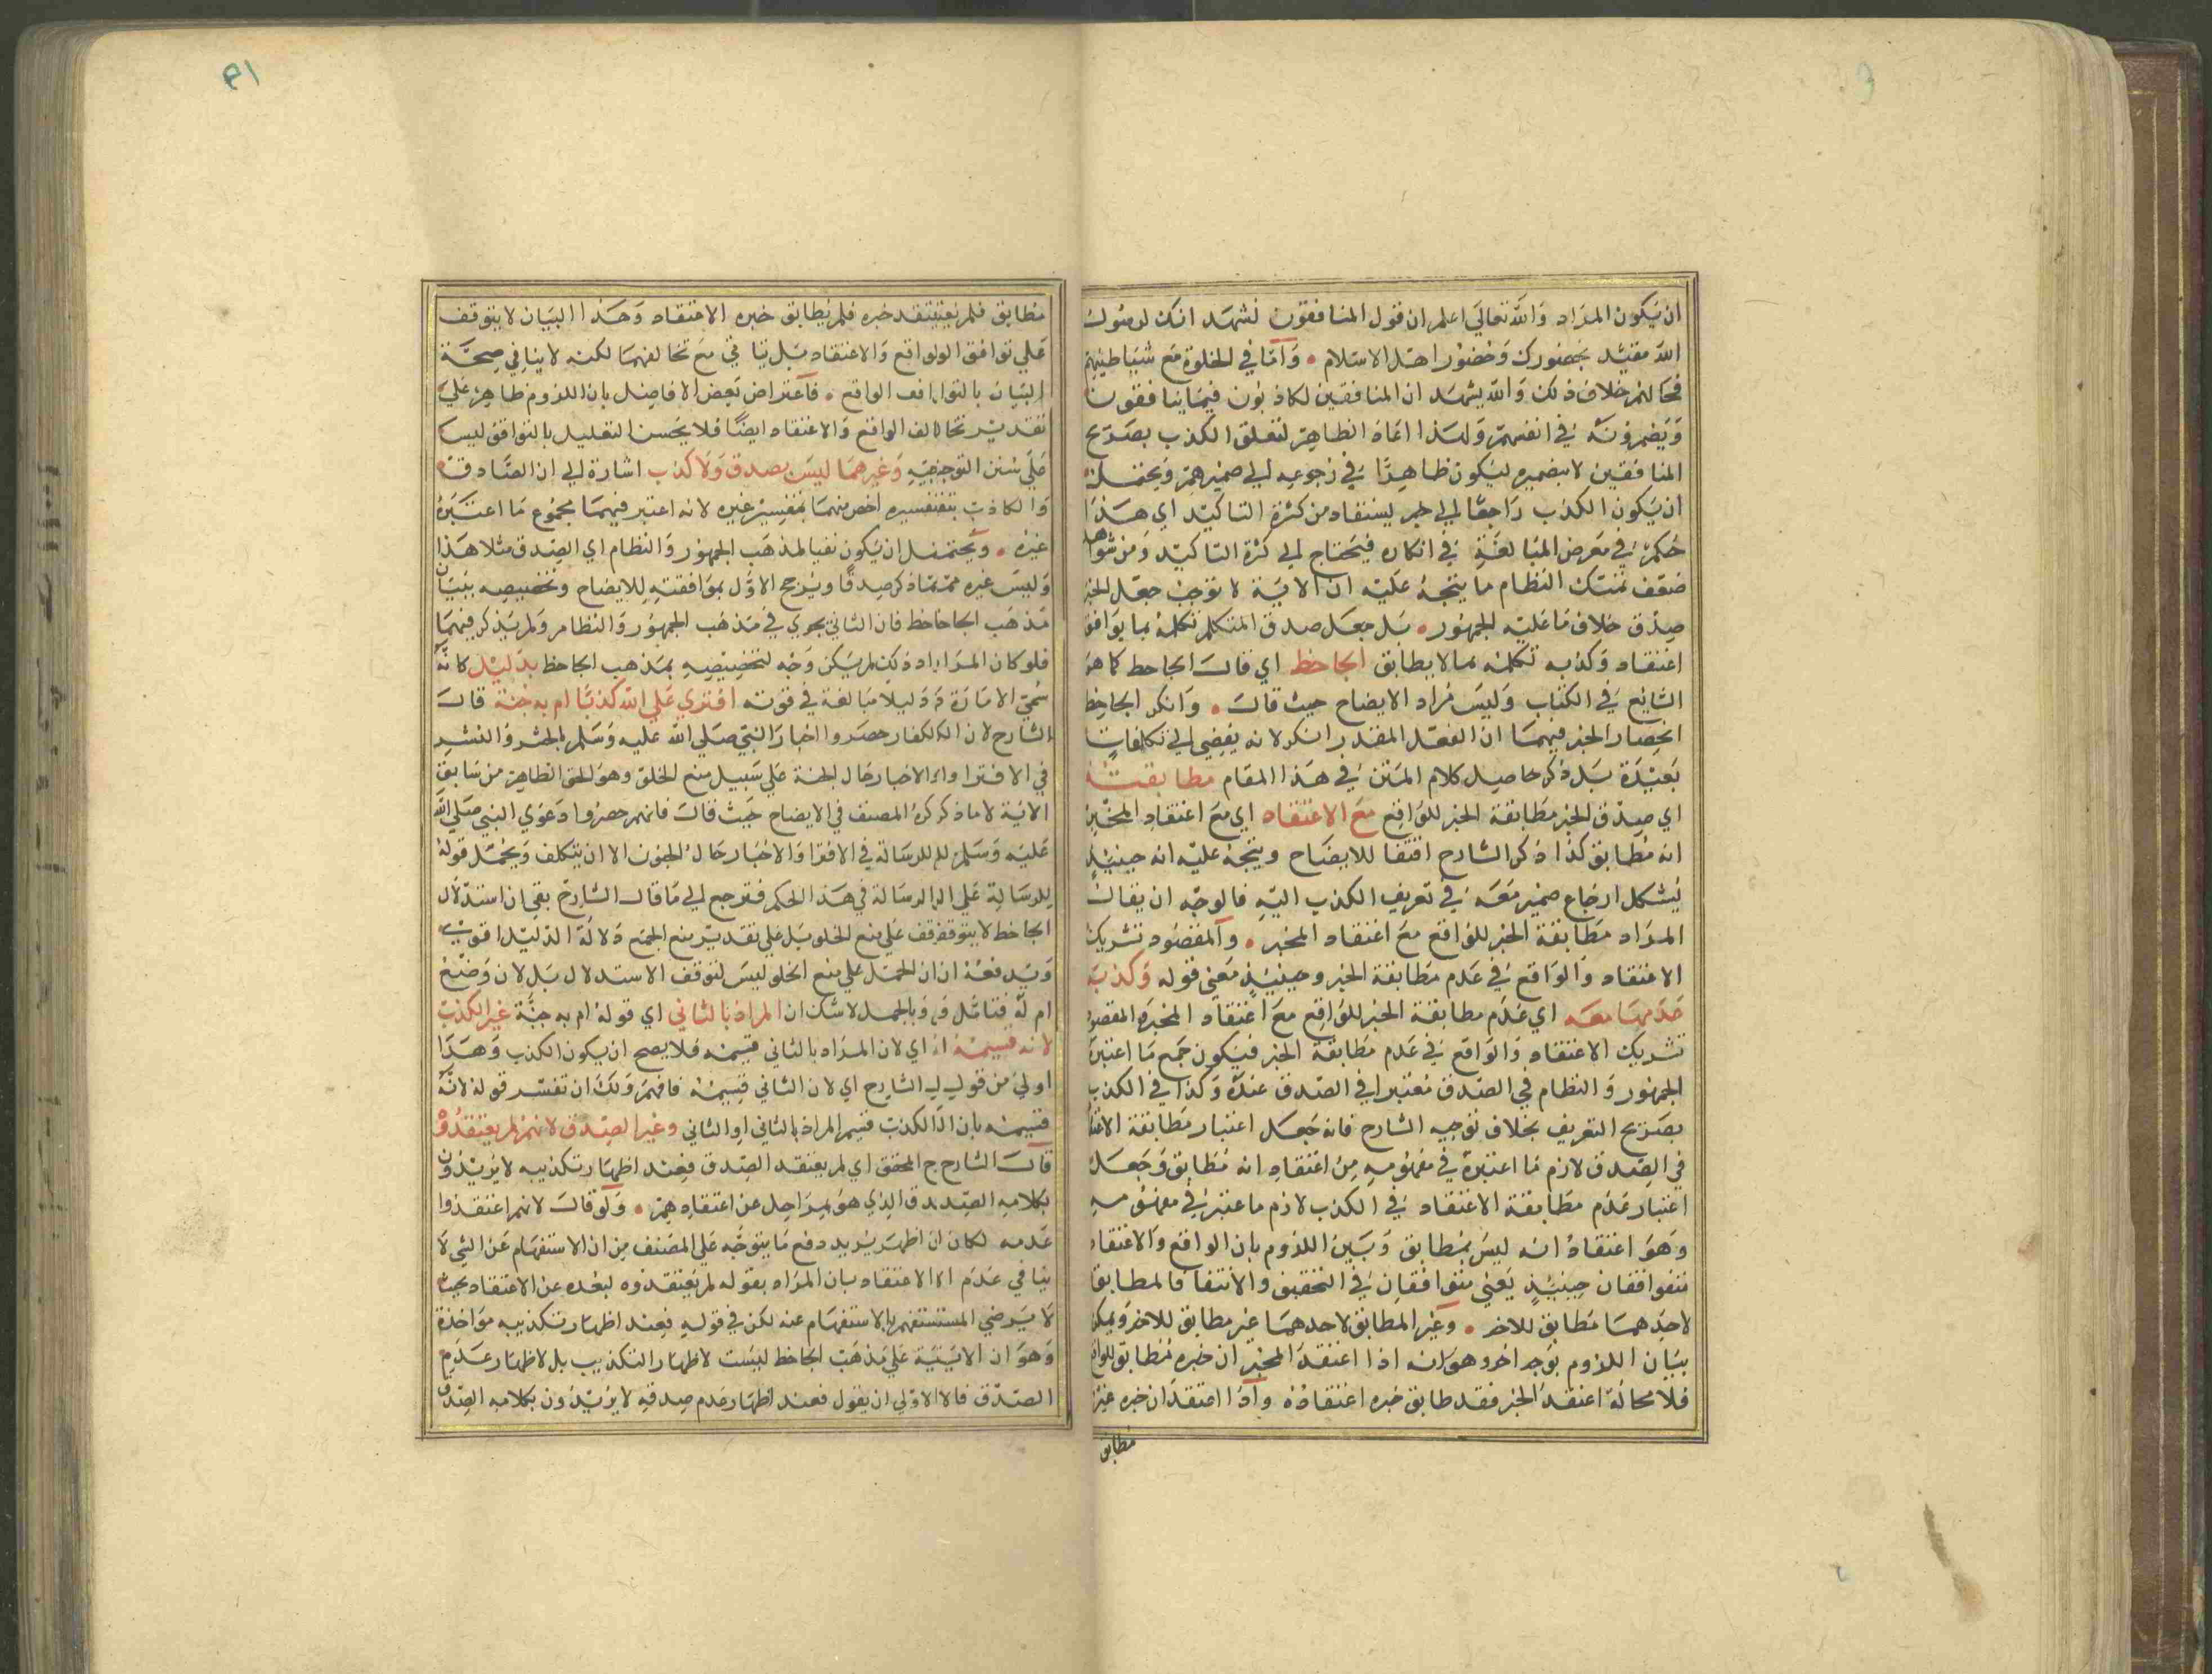 ان يكون المراد والله تعالى اعلم ان قول المنافقون نشهد انك لرسول
الله مقيد بحضورك وحضور اهل الاسلام • واما في الخلوة مع شياطينهم
فحالهم خلاف ذلك والله يشهد ان المنافقين لكاذبون فيما ينافقون
ويضمرونه في انفسهم ولهذا اعاد الظاهر لتعلق الكذب بصريح
المنافقين لا بضميره ليكون ظاهرا في رجوعه الى ضميرهم ويحتمل
ان يكون الكذب راجعا الى خبر يستفاد من كثرة التاكيد اي هذا
حكم في معرض المبالغة في انكاره فيحتاج الى كثرة التاكيد ومن شواهد
ضعف تمسك النظام ما يتجه عليه ان الاية لا توجب جعل الخبر
صدق خلاف ما عليه الجمهور • بل جعل صدق المتكلم تكلمه بما يوافق
اعتقاده وكذبه تكلمه بما لا يطابق الجاحظ اي قال الجاحظ كما هو
الشايع في الكتاب وليس مراد الايضاح حيث قال • وانكر الجاحظ
انحصار الخبر فيهما ان الفعل المقدر انكر لانه يفضي الى تكلفات
بعيدة بل ذكر حاصل كلام المتن في هذا المقام مطابقته
اي صدق الخبر مطابقة الخبر للواقع مع الاعتقاد اي مع اعتقاد المخبر
انه مطابق كذا ذكر الشارح اقتفا للايضاح ويتجه عليه انه حينئذ
يشكل ارجاع ضمير معه في تعريف الكذب اليه فالوجه ان يقال
المراد مطابقة الخبر للواقع مع اعتقاد المخبر • والمقصود تشريك
الاعتقاد والواقع في عدم مطابقة الخبر وحينئذ معنى قوله وكذبه
عدمها معه اي عدم مطابقة الخبر للواقع مع اعتقاد المخبر المقصود
تشريك الاعتقاد والواقع في عدم مطابقة الخبر فيكون جمع ما اعتبره
الجمهور والنظام في الصدق معتبرا في الصدق عنده وكذا في الكذب
بصريح التعريف بخلاف توجيه الشارح فانه جعل اعتبار مطابقة الاعتقاد
في الصدق لازم ما اعتبره في مفهومه من اعتقاد انه مطابق وجعل
اعتبار عدم مطابقة الاعتقاد في الكذب لازم ما عتبر في مفهومه
وهو اعتقاد انه ليس بمطابق وبين اللزوم بان الواقع والاعتقاد
متوافقان حينئذ يعني متوافقان في التحقيق والانتفا فالمطابق
لاحدهما مطابق للاخر • وغير المطابق لاحدهما غير مطابق للاخر ويمكن
بيان اللزوم بوجه اخر وهو انه اذا اعتقد المخبر ان خبره مطابق للواقع
فلا محالة اعتقد الخبر فقد طابق خبره اعتقاده واذا اعتقد ان خبره غير
مطابق
مطابق فلم يعتقد خبره فلم يطابق خبره الاعتقاد وهذا البيان لا يتوقف
على توافق الواقع والاعتقاد بل يتاتى مع تخالفهما لكنه لا ينافي صحة
البيان بالتوافق الواقع • فاعتراض بعض الافاضل بان اللزوم ظاهر على
تقدير تخالف الواقع والاعتقاد ايضا فلا يحسن التعليل بالتوافق ليس
على سنن التوجيه وغيرهما ليس بصدق ولا كذب اشارة الى ان الصادق
والكاذب بتفسيره اخص منهما بتفسير غيره لانه اعتبر فيهما مجموع ما اعتبره
غيره • ويحتمل ان يكون نفيا لمذهب الجمهور والنظام اي الصدق مثلا هذا
وليس غيره مما ذكر صدقا ويرجح الاول بموافقته للايضاح وتخصيصه ببيان
مذهب الجاحظ فان الثاني يجري في مذهب الجمهور والنظام ولم يذكر فيهما
فلو كان المراد ذلك لم يكن وجه لتخصيصه بمذهب الجاحظ بدليل كانه
سمى الامارة دليلا مبالغة في قوته افترى على الله كذبا ام به جنة قال
الشارح لان الكفار حصروا اخبار النبي صلى الله عليه وسلم بالحشر والنشر
في الافترا والاخبار حال الجنة على سبيل منع الخلو وهو الحق الظاهر من سابق
الاية لا ما ذكره المصنف في الايضاح حيث قال فانهم حصروا دعوى النبي صلى الله
عليه وسلم للرسالة في الافترا والاخبار حال الجنون الا ان يتكلف ويحمل قوله
للرسالة على الرسالة في هذا الحكم فترجع الى ما قال الشارح بقي ان استدلال
الجاحظ لا يتوقف على منع الخلو بل على تقدير منع الجمع دلالة الدليل اقوى
ويدفعه ان الحمل على منع الخلو ليس لتوقف الاستدلال بل لان وضع
ام له فتامل وبالجملة لا شك ان المراد بالثاني اي قوله ام به جنة غير الكذب
لانه قسيمه اي لان المراد بالثاني قسيمه فلا يصح ان يكون الكذب وهذا
اولى من قول الشارح اي لان الثاني قسيمه فافهم ولك ان تفسر قوله لانه
قسيمه بان الكذب قسيم المراد بالثاني او الثاني وغير الصدق لانهم لم يعتقدوه
قال الشارح المحقق اي لم يعتقد الصدق فعند اظهار تكذيبه لا يريدون
بكلامه الصدق الذي هو بمراحل عن اعتقادهم • ولو قال لانهم اعتقدوا
عدمه لكان اظهر يريد دفع ما يتوجه على المصنف من ان الاستفهام عن الشي لا
ينافي عدم الاعتقاد بان المراد بقوله لم يعتقدوه لبعده عن الاعتقاد بحيث
لا يرضي المستفهم بالاستفهام عنه لكن في قوله فعند اظهار تكذيبه مواخذة
وهو ان الاية على مذهب الجاحظ ليست لاظهار التكذيب بل لاظهار عدم
الصدق فالاولى ان يقول فعند اظهار عدم صدقه لا يريدون بكلامه الصدق